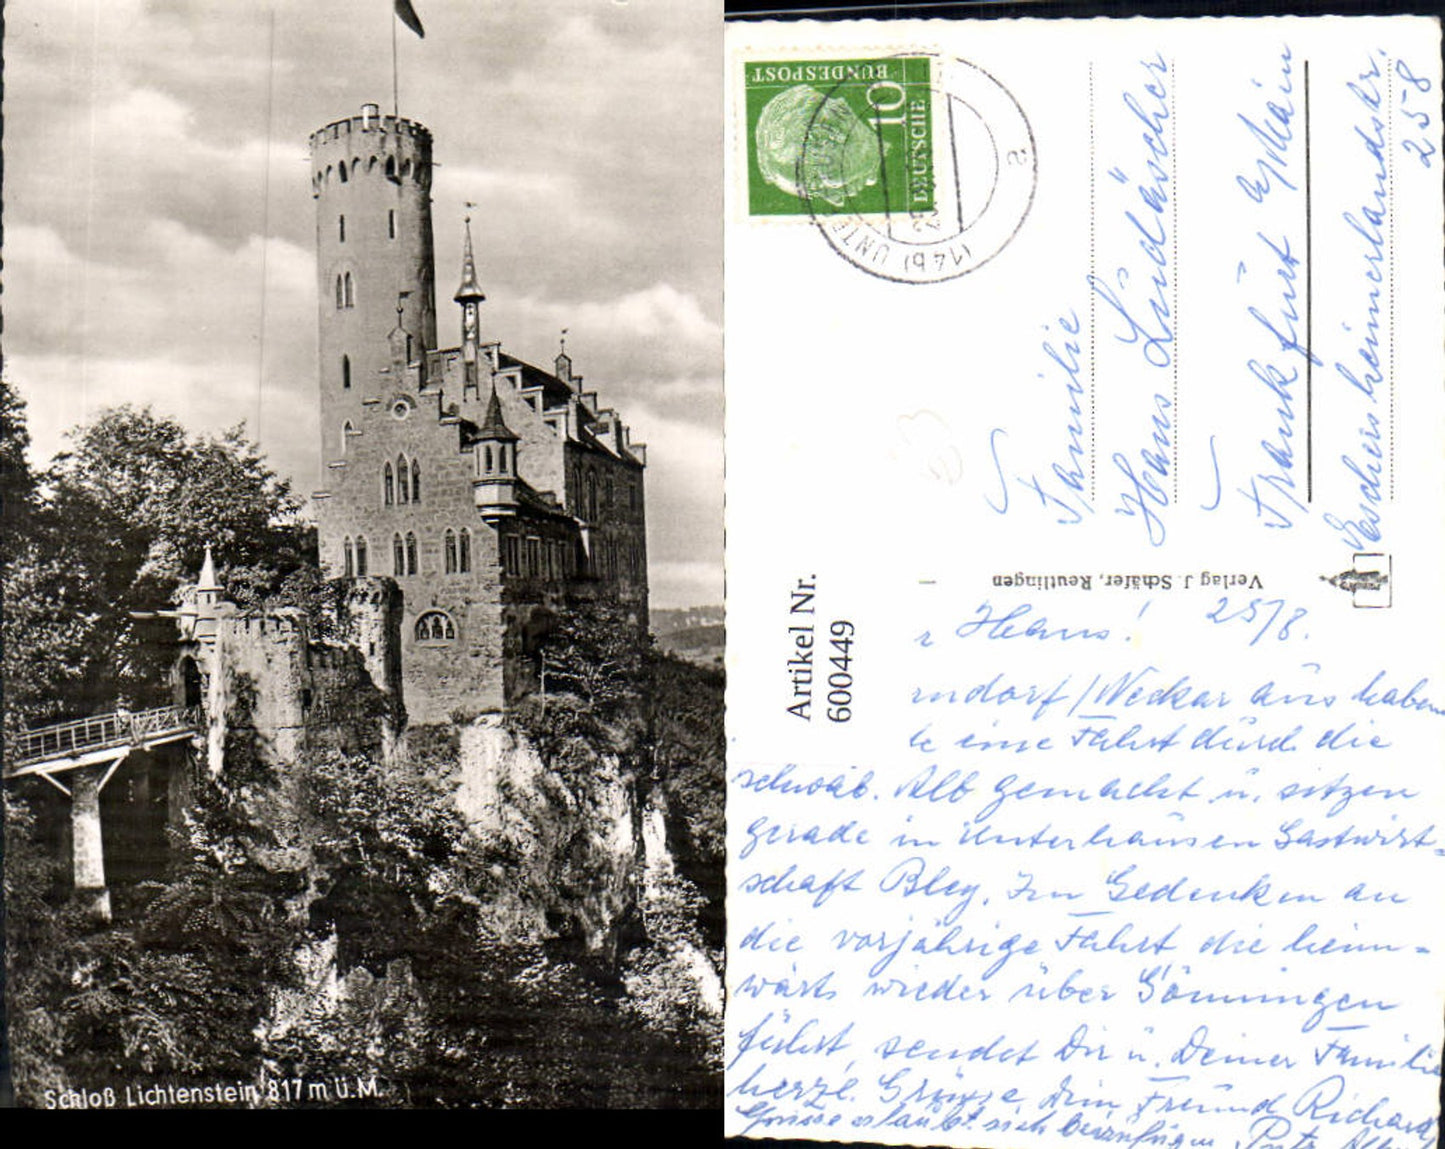 Schloß Lichtenstein, 817 m ü. M.
BUNDESPOST
10
DEUTSCHE
(14b) UNTE
2
Familie
Hans Lüdäscher
Frankfurt a/Main
Eschersheimerlandstr.
258
Artikel Nr.
600449
Verlag J. Schäfer, Reutlingen
r Hans! 25/8.
ndorf/Neckar aus haben
te eine Fahrt durch die
schwäb. Alb gemacht u. sitzen
gerade in Unterhausen Gastwirt=
schaft Bley. Im Gedenken an
die vorjährige Fahrt die heim=
wärts wieder über Gönningen
führt, sendet Dir u. Deiner Familie
herzl. Grüsse Dein Freund Richard
Grüsse erlaubt sich beizufügen